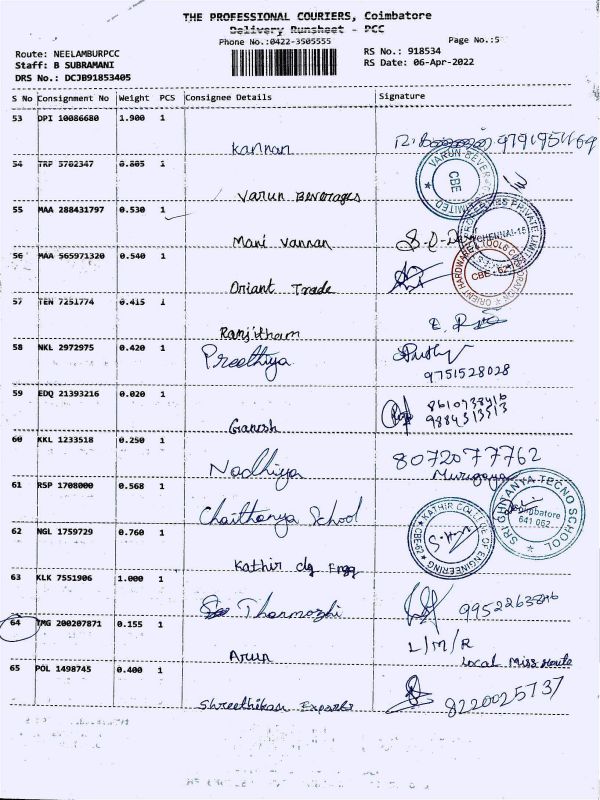 THE PROFESSIONAL COURIERS, Coimbatore
Delivery Runsheet - PCC
Phone No.:0422-3505555
Page No.:5
Route: NEELAMBURPCC
Staff: B SUBRAMANI
DRS No.: DCJB91853405
RS No.: 918534
RS Date: 06-Apr-2022
S No Consignment No Weight PCS Consignee Details Signature
53 DPI 10086680 1.900 1
Kannan
54 TRP 5702347 0.805 1
Varun Beverages
VARUN BEVERAGES LIMITED
CBE
55 MAA 288431797 0.530 1
Mani Vannan
PRIVATE LIMITED
CHENNAI-15
56 MAA 565971320 0.540 1
Oriant Trade
ORIENT HARDWARE & TOOLS CORPORATION
57 TEN 7251774 0.415 1
Ranjitham
58 NKL 2972975 0.420 1
Preethiya
9751528028
59 EDQ 21393216 0.020 1
Ganesh
60 KKL 1233518 0.250 1
Nadhiya 8072077762
61 RSP 1708000 0.568 1
Chaithanya School
SRI CHAITANYA TECNO SCHOOL
Coimbatore
641 062
62 NGL 1759729 0.760 1
Kathir clg Engg
KATHIR COLLEGE OF ENGINEERING
63 KLK 7551906 1.000 1
Thenmozhi
64 TMG 200207871 0.155 1
Arun
L/M/R
Local Miss Route
65 POL 1498745 0.400 1
8220025737
Exports